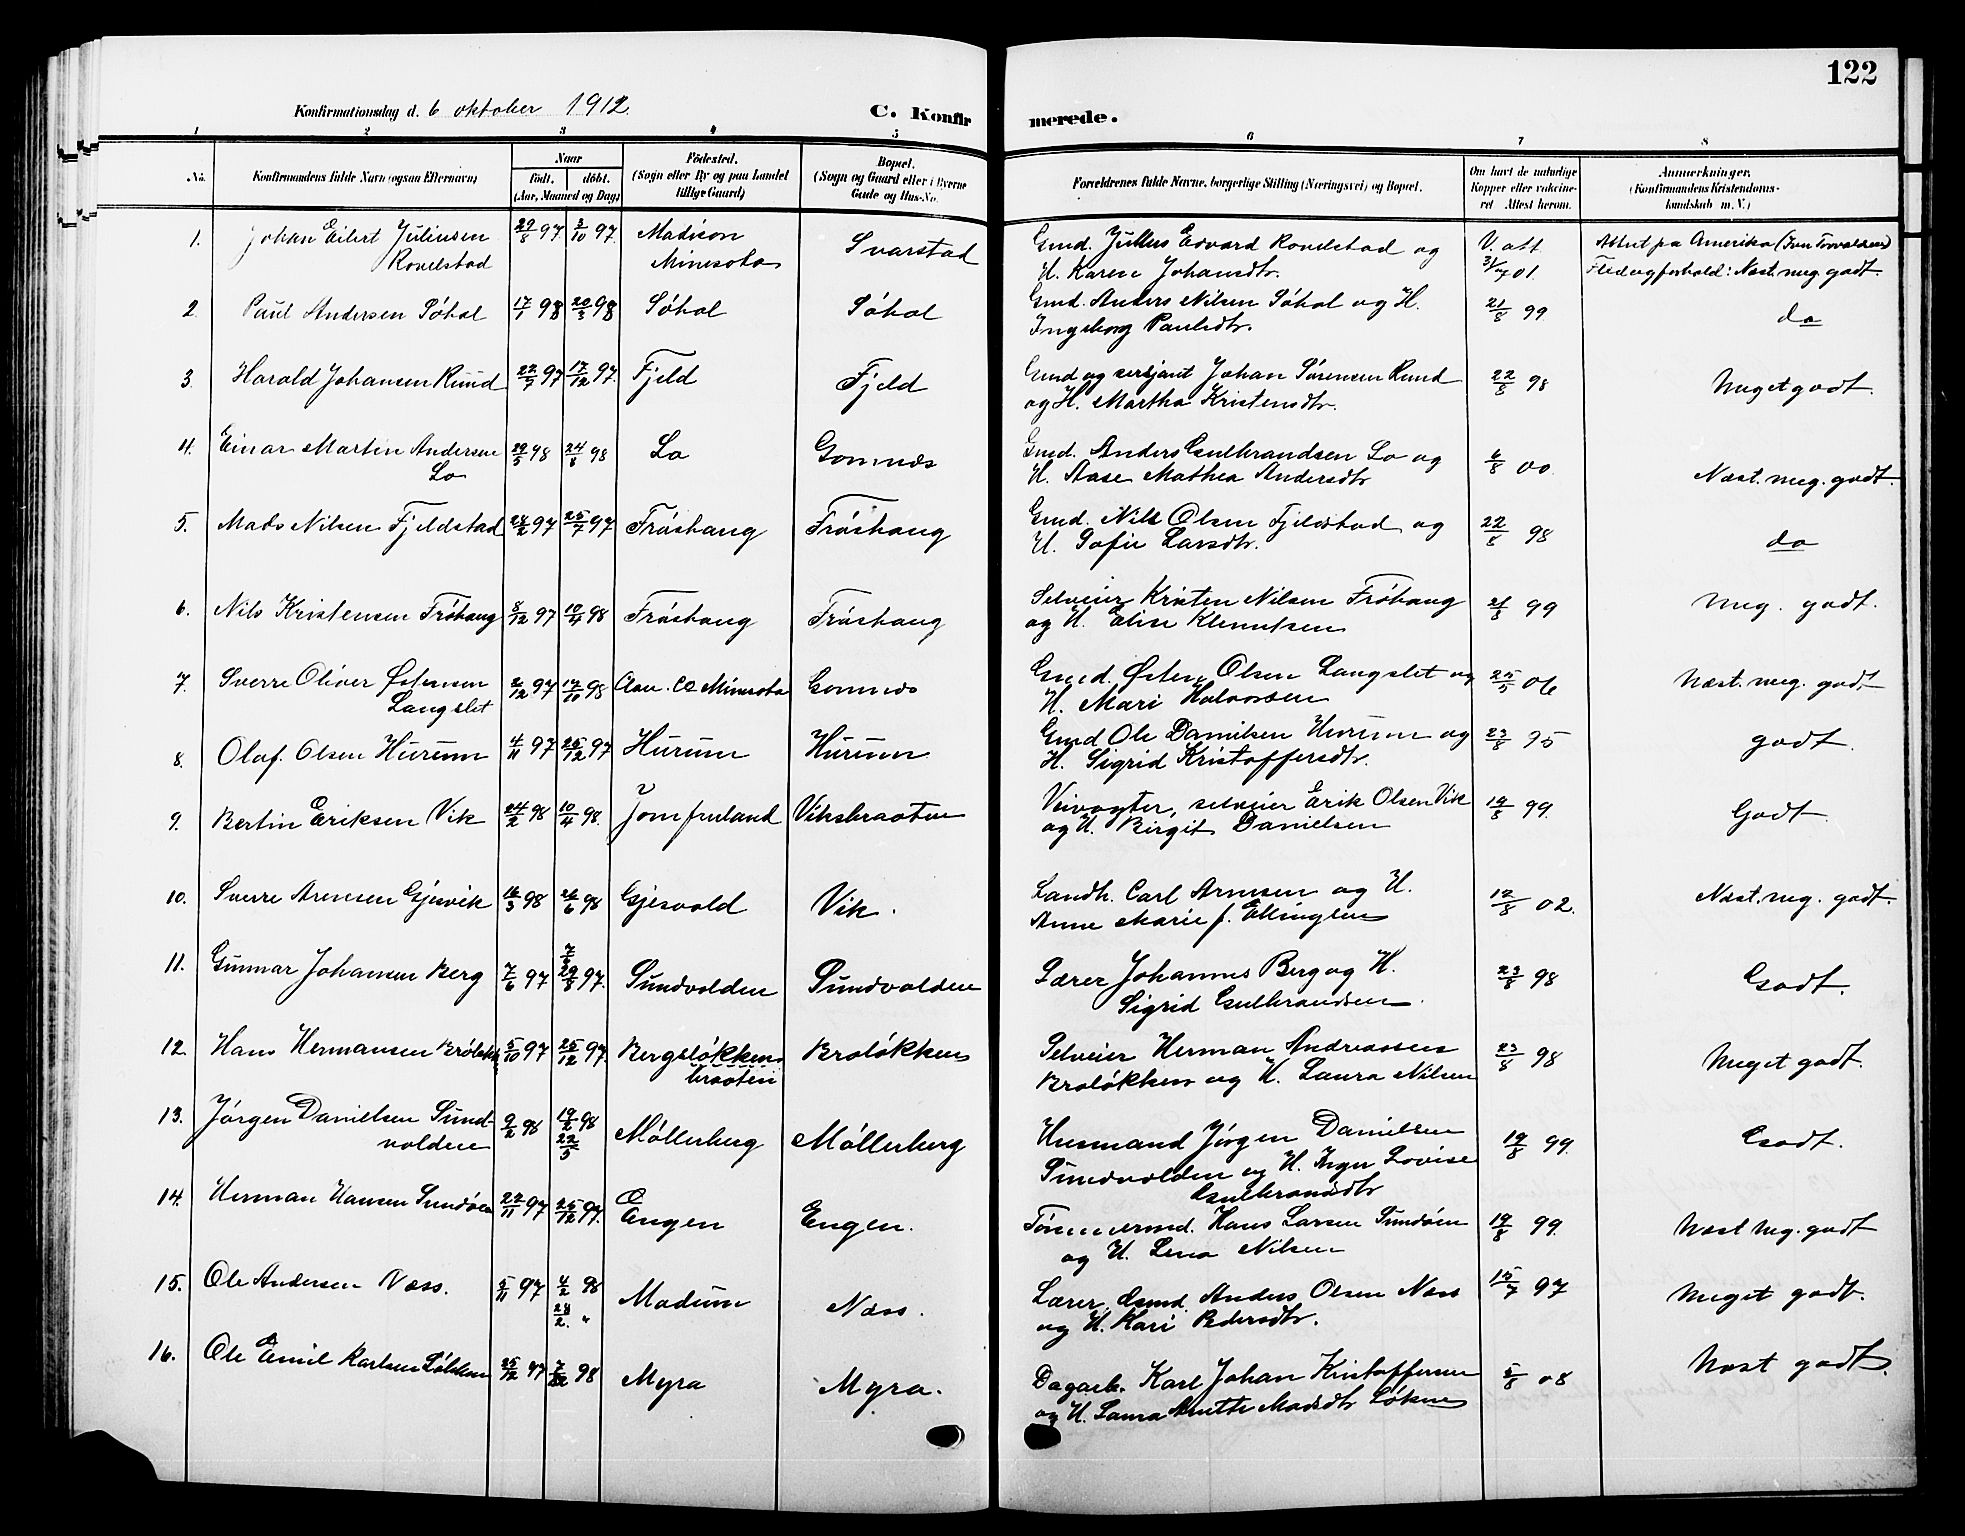 122
Konfirmationsdag d. 6 oktober 1912.
C. Konfirmerede.
1 2 3 4 5 6 7 8
No. Konfirmandens fulde Navn (ogsaa Efternavn) Naar født. døbt. (Aar, Maaned og Dag) Födested. (Sogn eller By og paa Landet tillige Gaard) Bopæl. (Sogn og Gaard eller i Byerne Gade og Hus-No. Forældrenes fulde Navne, borgerlige Stilling (Næringsvei) og Bopæl. Om havt de naturlige Kopper eller vakcineret Attest herom. Anmærkninger. (Konfirmandens Kristendomskundskab m. V.)
1. Johan Eilert Juliusen 29/8 97 3/10 97. Madison Svarstad Gmd. Julius Edvard Rovelstad og V. att.
Rovelstad Minesota H. Karen Johansdtr. 01. Næst. meg. godt.
2. Paul Andersen Söhol 17/1 98 20/3 98 Söhol Söhol Gmd. Anders Nilsen Söhol og H. 21/8 99 do
Ingeborg Paulsdtr.
3. Harald Johansen Rund 97 17/12 97. Fjeld Fjeld Gmd og sersjant Johan Sørensen Rund 22/8 98 Meget godt.
og H. Martha Kristensdtr.
4. Einar Martin Andersen 29/5 98 98 Lo Gomnæs Gmd. Anders Gulbrandsen Lo og 6/8 00. Næst. meg. godt.
Lo H. Aase Mathea Andersdtr
5. Mads Nilsen Fjeldstad 97 25/7 97 Fröshaug Fröshaug Gmd. Nils Olsen Fjeldstad og 22/8 98 do
H. Sofie Larsdtr.
6. Nils Kristensen Fröhaug 97 10/4 98 Fröshaug Fröshaug Selveier Kristen Nilsen Fröhaug 21/8 99 Meg. godt.
og H. Elise Klemetsen
7. Sverre Oliver Østensen 97 98 Co Minesota Gomnæs Gmd. Østen Olsen Langslet og 25/5 06 Næst. meg. godt
Langslet H. Mari Halvorsen
8. Olaf Olsen Hurum 4/11 97 26/12 97 Hurum Hurum Gmd Ole Danielsen Hurum og 23/8 95 godt.
H. Sigrid Kristoffersdtr.
9. Bertin Eriksen Vik 24/2 98 10/4 98. Jomfruland Viksbraaten Veivogter, selveier Erik Olsen Vik 19/8 99. Godt.
og H. Birgit Danielsen
10. Sverre Arnesen Gjesvik 16/3 98 26/6 98 Gjesvold Vik. Landh. Carl Arnesen og H. 12/8 02. Næst. meg. godt.
Anne Marie f. Ellingsen
11. Gunnar Johansen Berg 7/6 97 29/8 97. Sundvolden Sundvolden Lærer Johannes Berg og H. 23/8 98 Godt.
Sigrid Gulbrandsen.
12. Hans Hermansen 5/10 97 25/12 97 Bergsløkken Broløkken Selveier Herman Andreassen 23/8 98 Meget godt.
braaten Broløkken og H. Laura Nilsen
13. Jörgen Danielsen Sund- 9/2 98 19/2 98 Møllerberg Møllerberg Husmand Jörgen Danielsen 19/8 99. Godt.
volden 22/5 Sundvolden og H. Inger Lovise
Gulbrandsdtr
14. Herman Hansen Sundöen 22/11 97 26/12 97. Engen Engen. Tømmermd. Hans Larsen Sundöen 19/8 99. Næst Meg. godt
og H. Lena Nilsen
15. Ole Andersen Næss. 5/11 97 4/2 98 Modum Næss. Lærer, Gmd. Anders Olsen Næss 15/7 97 Meget godt.
28/2. " og H. Kari Pedersdtr.
16. Ole Emil Karlsen 25/12 97 98 Myra Myra. Dagarb. Karl Johan Kristoffersen 5/8 08 Næst godt.
og H. Laura Madsdtr Løken